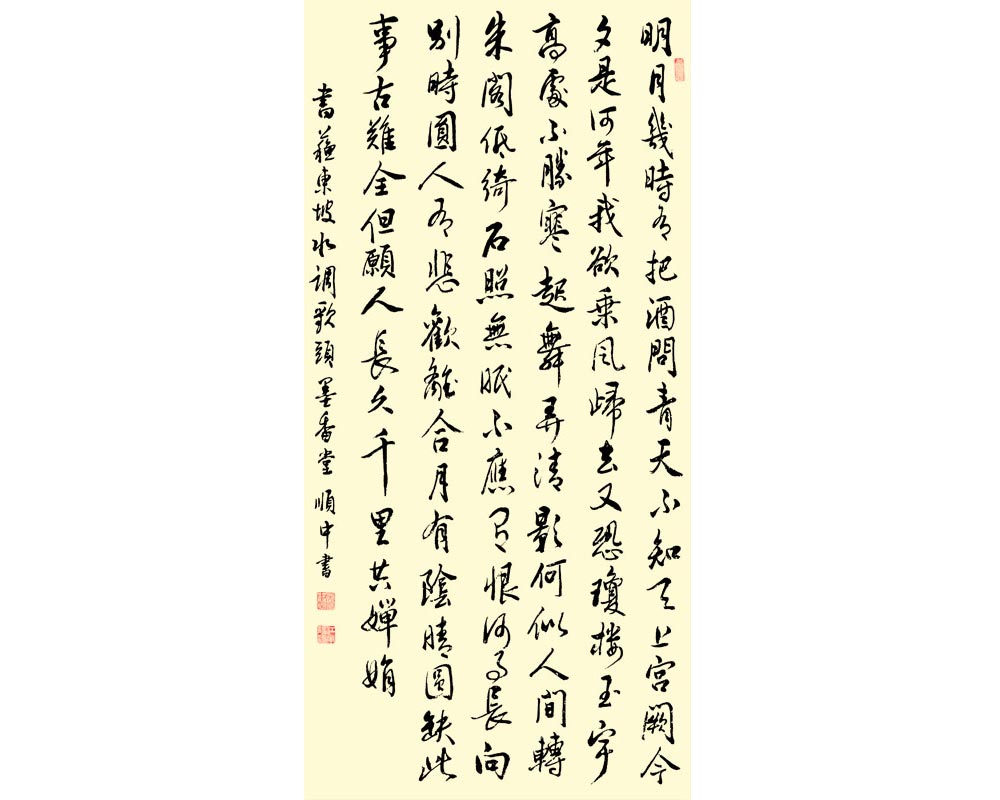 明月幾時有把酒問青天不知天上宮闕今
夕是何年我欲乘風歸去又恐瓊樓玉宇
高處不勝寒起舞弄清影何似人間轉
朱閣低綺石照無眠不應有恨何事長向
別時圓人有悲歡離合月有陰晴圓缺此
事古難全但願人長久千里共嬋娟
書蘇東坡水调歌頭墨香堂順中書